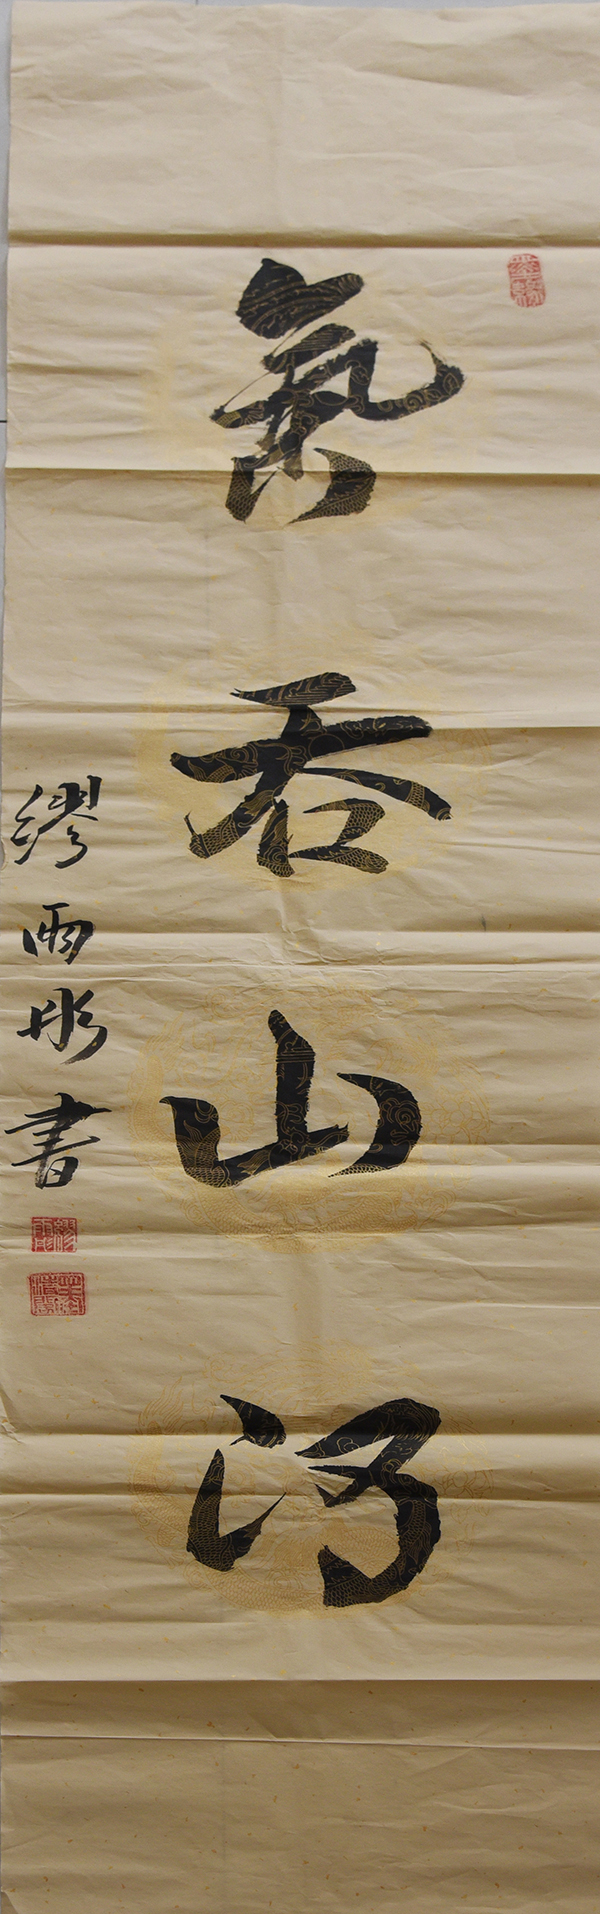 氣吞山河
缪雨彤書